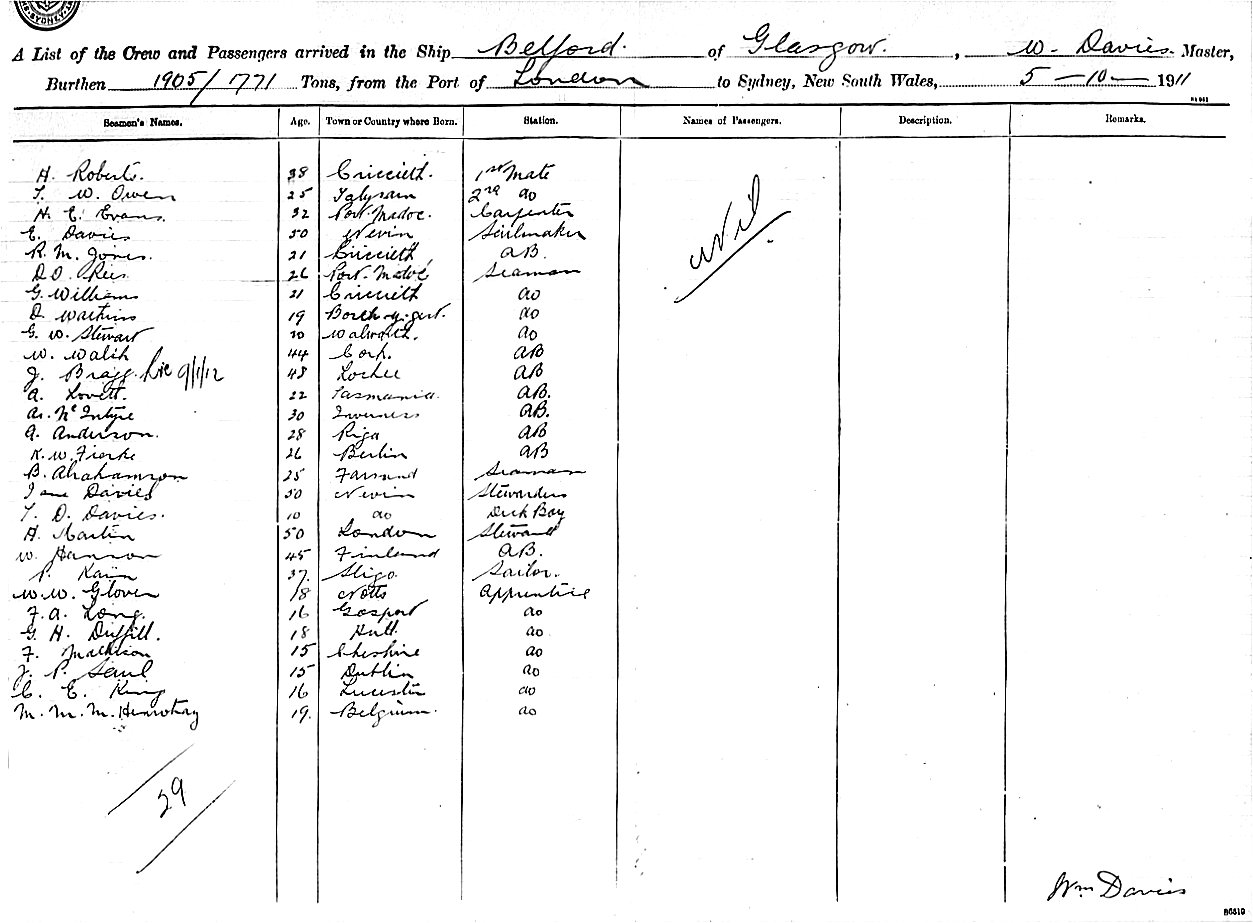 SYDNEY
A List of the Crew and Passengers arrived in the Ship Belford. of Glasgow. , W. Davies. Master,
Burthen 1905/1771 Tons, from the Port of London to Sydney, New South Wales, 5 - 10 - 1911
Seamen's Names. Age. Town or Country where Born. Station. Names of Passengers. Description. Remarks.
H. Roberts. 38 Criccieth. 1st Mate
T. W. Owen 25 Talysarn 2nd do
H. E. Evans. 32 Port. Madoc. Carpenter
E. Davies 50 Nevin Sailmaker
R. M. Jones. 21 Criccieth AB.
D O. Rees 26 Port. Madoc Seaman
G. Williams 21 Criccieth do
D. Watkins 19 Borth-y-gest. do
G. W. Stewart 20 Walworth. do
W. Walsh 44 Cork. AB
J. Bragg. 9/1/12 48 Lochee AB
A. Lovett. 22 Tasmania. AB.
McIntyre 30 Inverness AB.
A. Anderson. 28 Riga AB
K. W. Fierke 26 Berlin AB
B. Abrahamson 25 Seaman
Jane Davies 50 Nevin Stewardess
T. D. Davies. 10 do Deck Boy
H. Martin 50 London Steward
W. Hanson 45 Finland AB.
P. Kain 37. Sligo. Sailor.
W. W. Glover 18 Notts Apprentice
F. A. Long. 16 Gosport do
G. H. Duffill. 18 Hull. do
F. Mathison 15 Cheshire do
J. P. Saul 15 Dublin do
C. E. King 16 Leicester do
M. M. M. 19. Belgium. do
Nil
29
Wm Davies